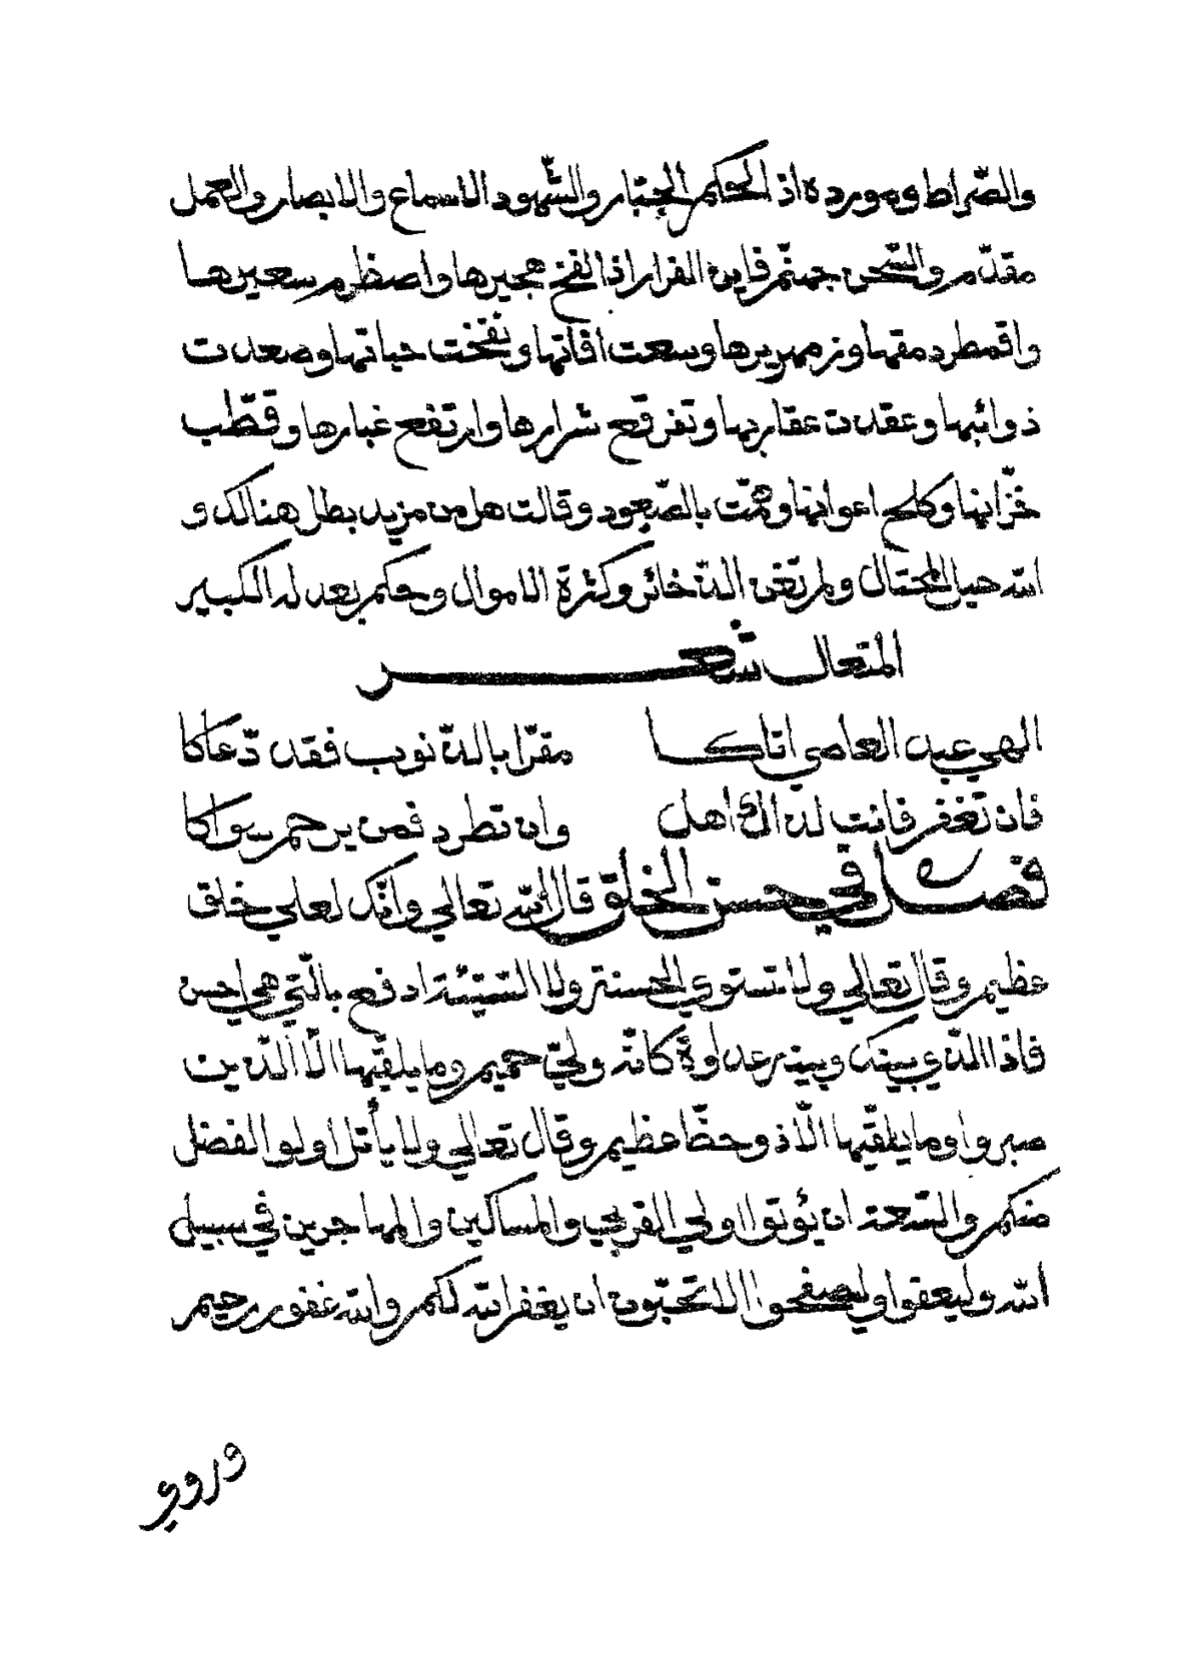 والصّراط ومورده اذ الحكم الجبّار والشّهود الاسماع والابصار والعمل
مقدّم والسّجن جهنّم فاين الفرار اذا لفح هجيرها واضطرم سعيرها
واقمطر دمقها وزمهريرها وسعت افاتها ونفخت حياتها وصعدت
ذوائبها وعقدت عقاربها وتفرقع شرارها وارتفع غبارها وقطّب
خزّانها وكلح اعوانها وهمّت بالصّعود وقالت هل من مزيد بطل هنالك و
الله حيل المحتال ولم تغن الذّخائر وكثرة الاموال وحكم بعدله الكبير
المتعال شعر
الهي عبد العاصي اتاكا مقرّا بالذّنوب فقد دّعاكا
فان تغفر فانت لذاك اهل وان تطرد فمن يرحم سواكا
فصل في حسن الخلق قال الله تعالي وانّك لعلي خلق
عظيم وقال تعالي ولا تستوي الحسنة ولا السّيّئة ادفع بالّتي هي احسن
فاذا الّذي بينك وبينه عداوة كانّه وليّ حميم وما يلقّيها الّا الّذين
صبروا وما يلقّيها الّا ذو حظّ عظيم وقال تعالي ولا يأتل اولوا الفضل
منكم والسّعة ان يؤتوا اولي القربي والمساكين والمهاجرين في سبيل
الله وليعفوا وليصفحوا الا تحبّون ان يغفر الله لكم والله غفور رحيم
وروي